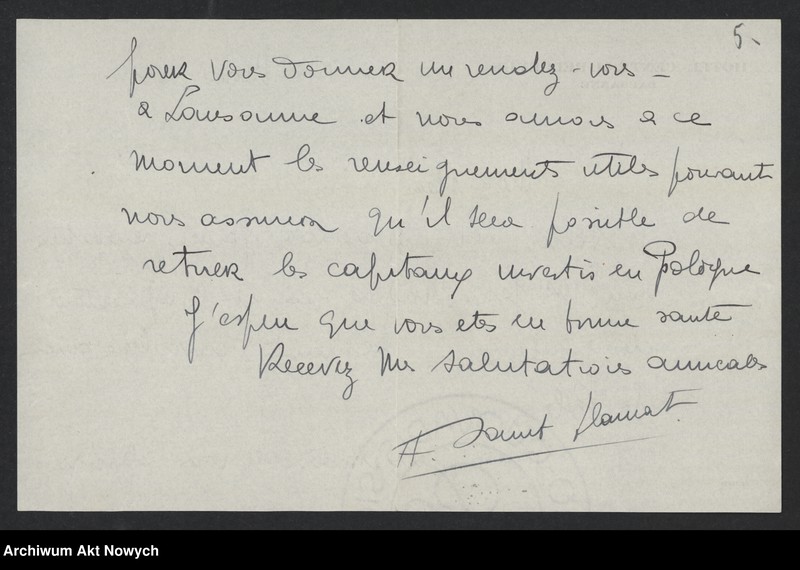 5.
pour vous donner un rendez-vous -
a Lausanne et nous aurons a ce
moment les renseignements utiles pouvant
nous assurer qu'il sera possible de
retirer les capitaux investis en Pologne
J'espere que vous etes en bonne sante
Recevez mes salutations amicales
H. Saint
Archiwum Akt Nowych